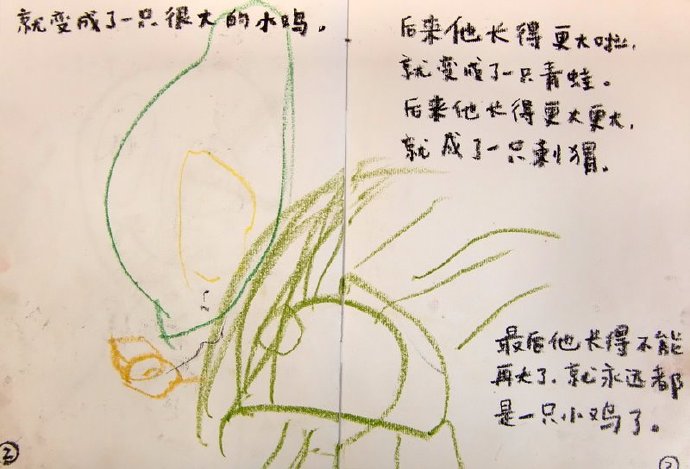 就变成了一只很大的小鸡。
后来他长得更大啦,
就变成了一只青蛙。
后来他长得更大更大,
就成了一只刺猬。
最后他长得不能
再大了,就永远都
是一只小鸡了。
②